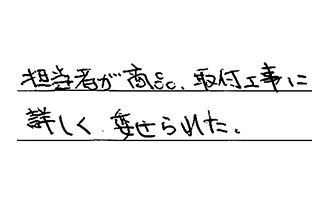 担当者が商品、取付工事に
詳しく、任せられた。